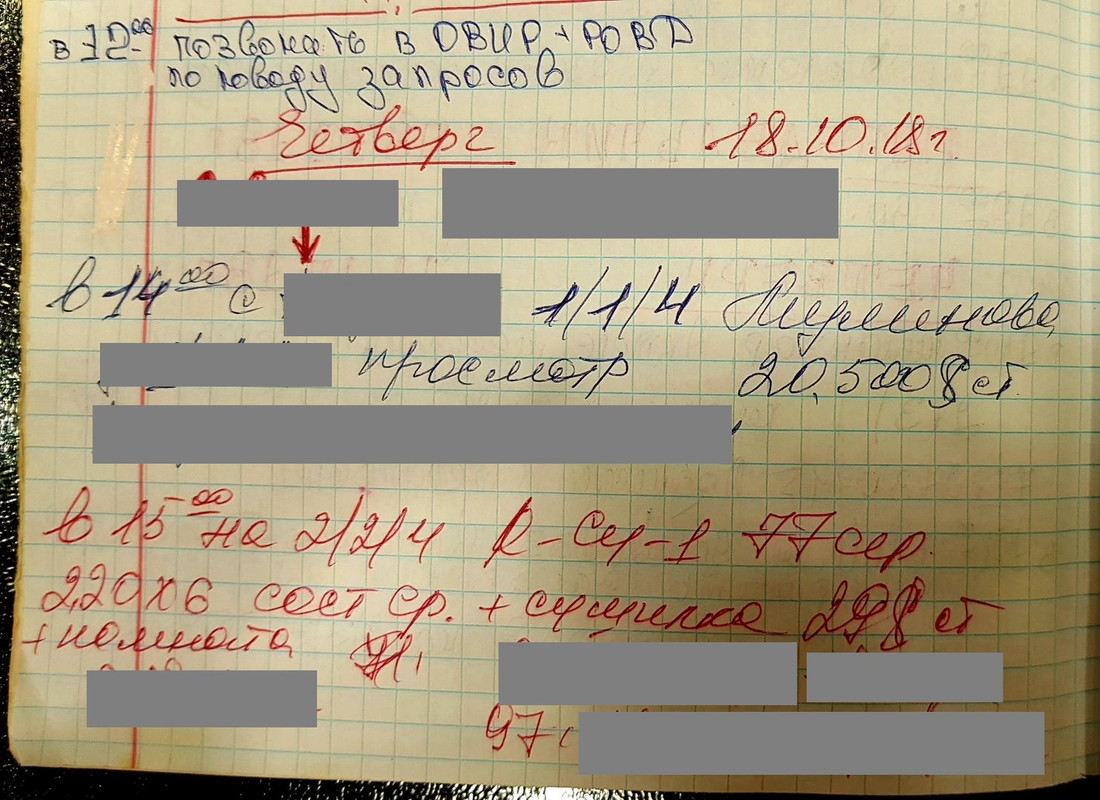 в 12 00 позвонить в ОВИР + РОВД
по поводу запросов
Четверг 18.10.18г.
в 14 00 с 1/1/4
просмотр 20,500$ ст
в 15 00 на 2/2/4 77 сер.
2,20х6 сост ср. + сушилка ст
+ комната
97